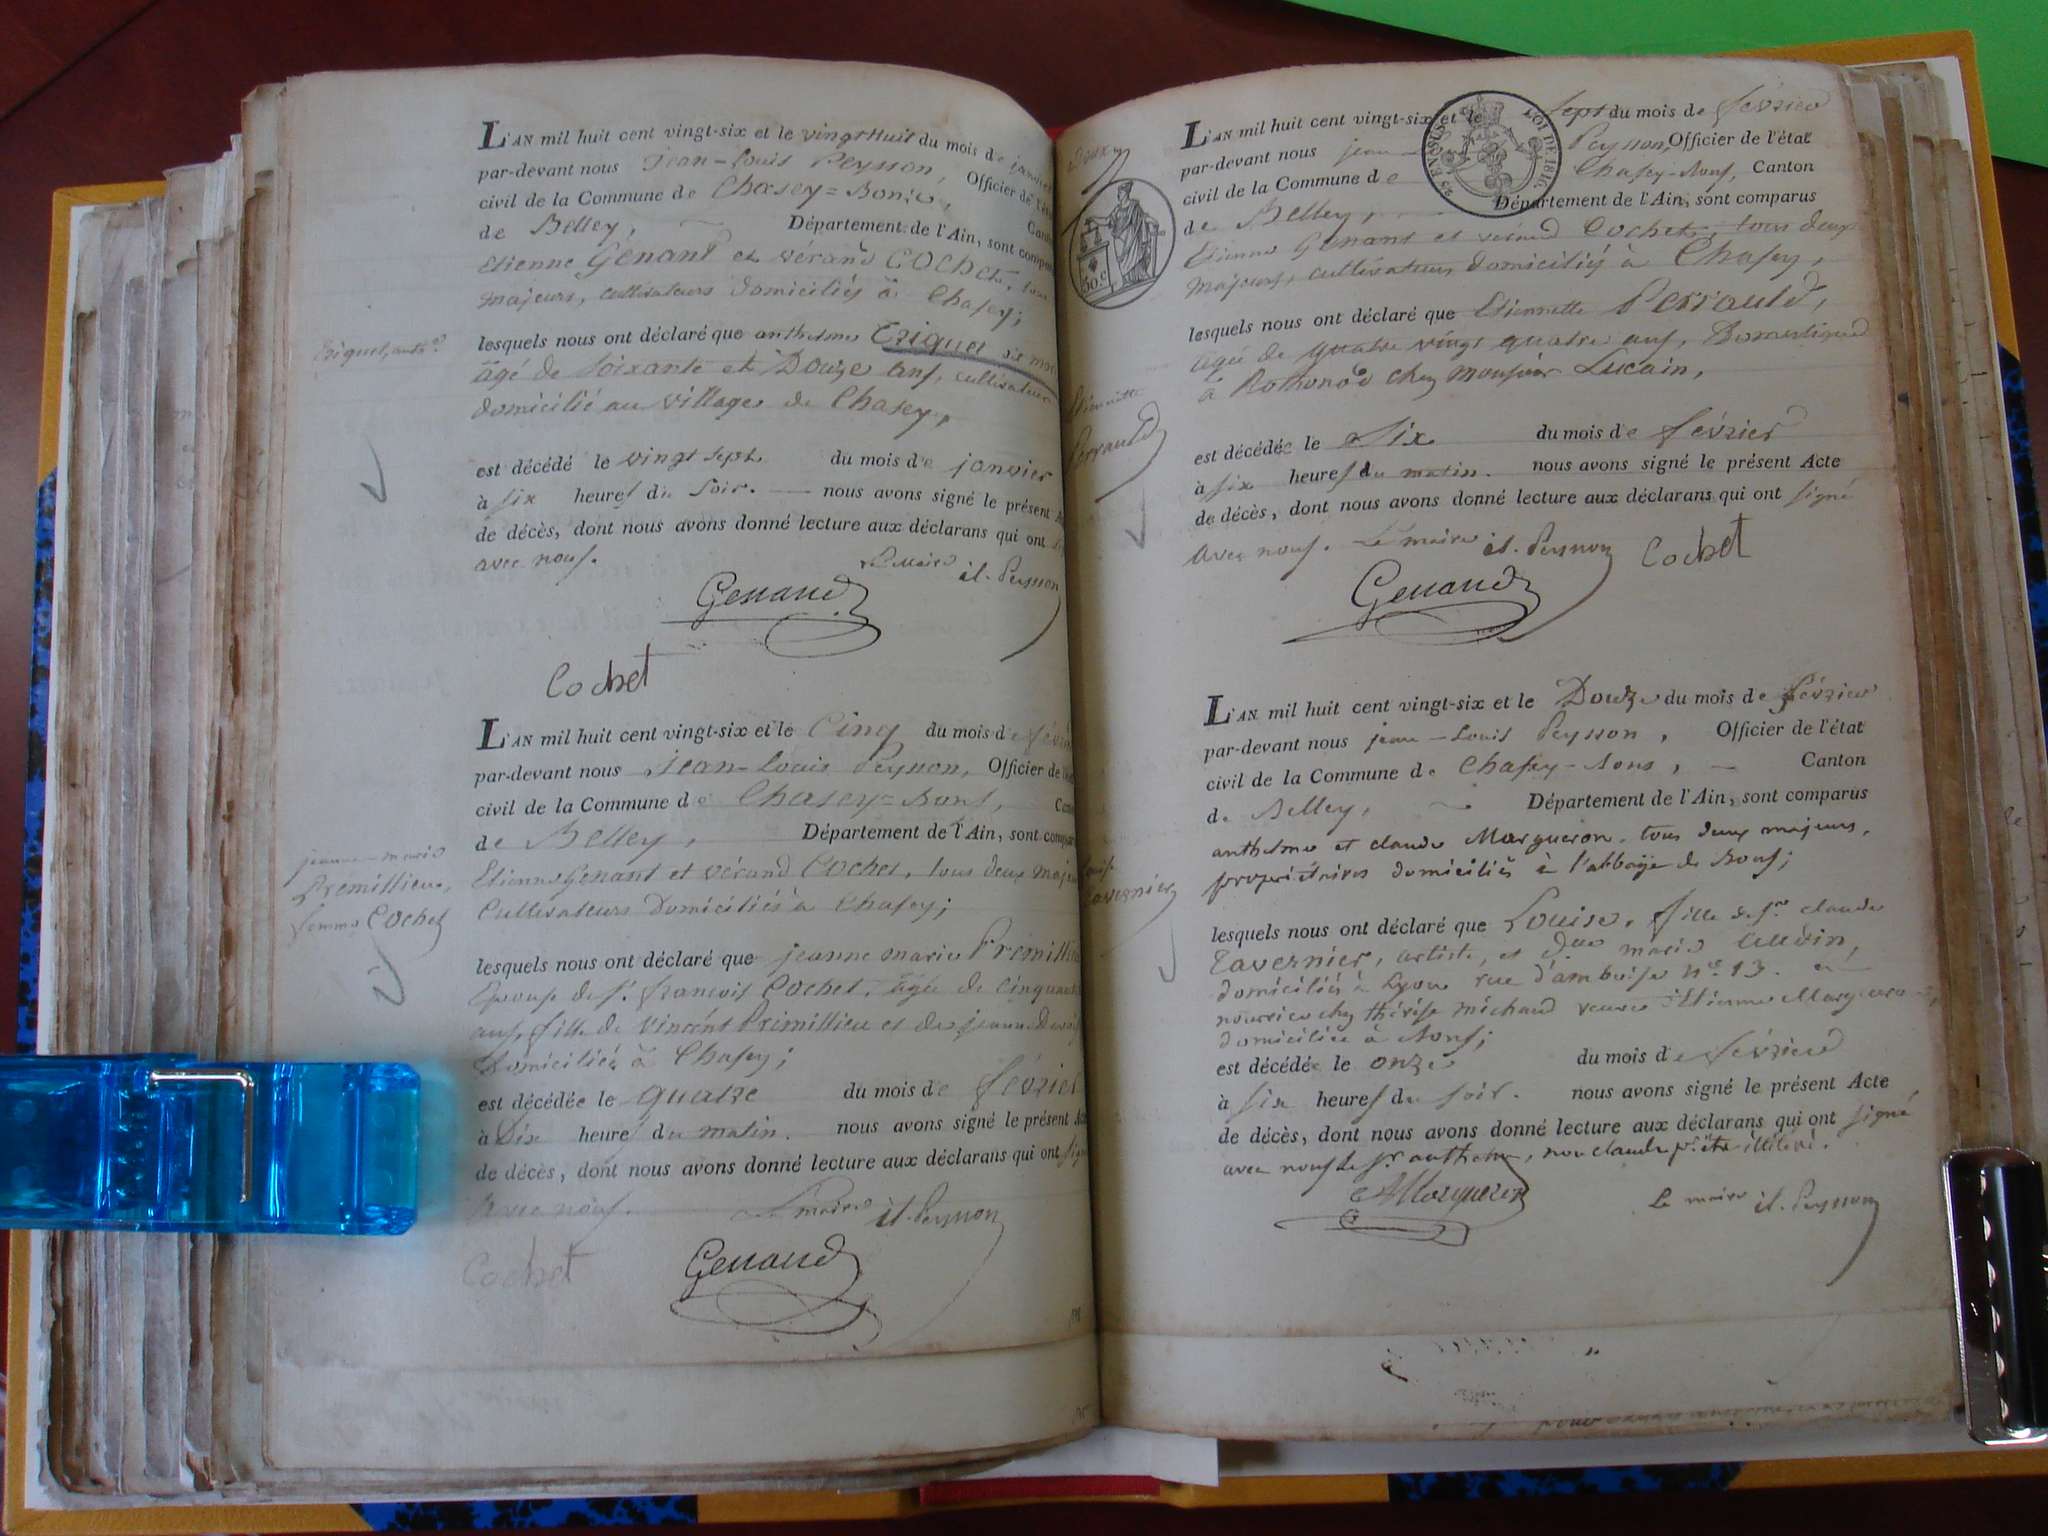 L'AN mil huit cent vingt-six et le vingt huit du mois de janvier
par-devant nous Jean-Louis Peysson, Officier de l'état
civil de la Commune de Chasey=Bons, Canton
de Belley, Département de l'Ain, sont comparus
Etienne Genant et vérand Cochet, tous
majeurs, cultivateurs domiciliés à Chasey;
lesquels nous ont déclaré que anthelme
âgé de soixante et Douze ans, cultivateur
domicilié au village de Chasey,
est décédé le vingt sept du mois de janvier
à six heures du soir. nous avons signé le présent
de décès, dont nous avons donné lecture aux déclarans qui ont
avec nous. Le Maire jl. Peysson
Genand
Cochet
L'AN mil huit cent vingt-six et le Cinq du mois de
par-devant nous Jean-Louis Peysson, Officier de
civil de la Commune de Chasey=Bons,
de Belley, Département de l'Ain, sont
jeanne-marie
Premillieu,
femme Cochet
Etienne Genant et vérand Cochet, tous deux
Cultivateurs Domiciliés à Chasey;
lesquels nous ont déclaré que jeanne marie
Epouse de Sr. françois Cochet, âgée de cinquante
ans, fille de vincent Primillieu et de jeanne
Domiciliée à Chasey;
est décédée le quatre du mois de février
à Dix heures du matin. nous avons signé le présent
de décès, dont nous avons donné lecture aux déclarans qui ont
avec nous. Le maire jl. Peysson
Cochet Genand
L'AN mil huit cent vingt-six et le Sept du mois de février
par-devant nous jean Peysson, Officier de l'état
civil de la Commune de Chasey-Bons, Canton
de Belley, Département de l'Ain, sont comparus
LOI DE 1816.
50 c
Etienne Genant et vérand Cochet, tous deux
majeurs, cultivateurs domiciliés à Chasey,
lesquels nous ont déclaré que Etiennette Perrauld,
âgée de quatre vingt quatre ans, Domestique
à Rothonod chez Monsieur Lucain,
Etiennette
Perrauld
est décédée le Six du mois de février
à six heures du matin. nous avons signé le présent Acte
de décès, dont nous avons donné lecture aux déclarans qui ont signé
avec nous. Le maire jl. Peysson Cochet
Genand
L'AN mil huit cent vingt-six et le Douze du mois de février
par-devant nous jean-Louis Peysson, Officier de l'état
civil de la Commune de Chasey-Bons, Canton
de Belley, Département de l'Ain, sont comparus
anthelme et claude Margueron, tous deux majeurs,
propriétaires domiciliés à l'abbaye de Bons;
Louise
Tavernier
lesquels nous ont déclaré que Louise, fille de Sr. claude
Tavernier, artiste, et Dme marie
domiciliés à Lyon rue d'amboise n°. 13. en
nourrice chez thérèse michaud veuve Etienne Margueron,
domiciliée à Bons;
est décédée le onze du mois de février
à six heures du soir. nous avons signé le présent Acte
de décès, dont nous avons donné lecture aux déclarans qui ont signé
avec nous le Sr anthelme, non claude pr. être illitéré.
AMargueron Le maire jl. Peysson